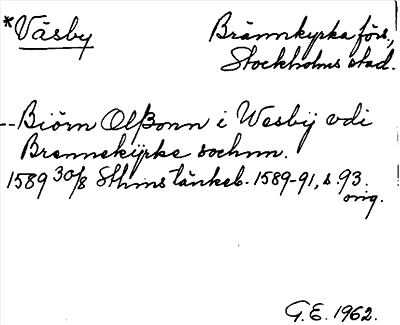 *Väsby Brännkyrka förs.,
Stockholms stad.
--Biörn Olßonn i Wesbÿ vdi
Brennekÿrke sochnn.
1589 30/8 Sthms tänkeb. 1589-91, s. 93.
orig.
G.E. 1962.